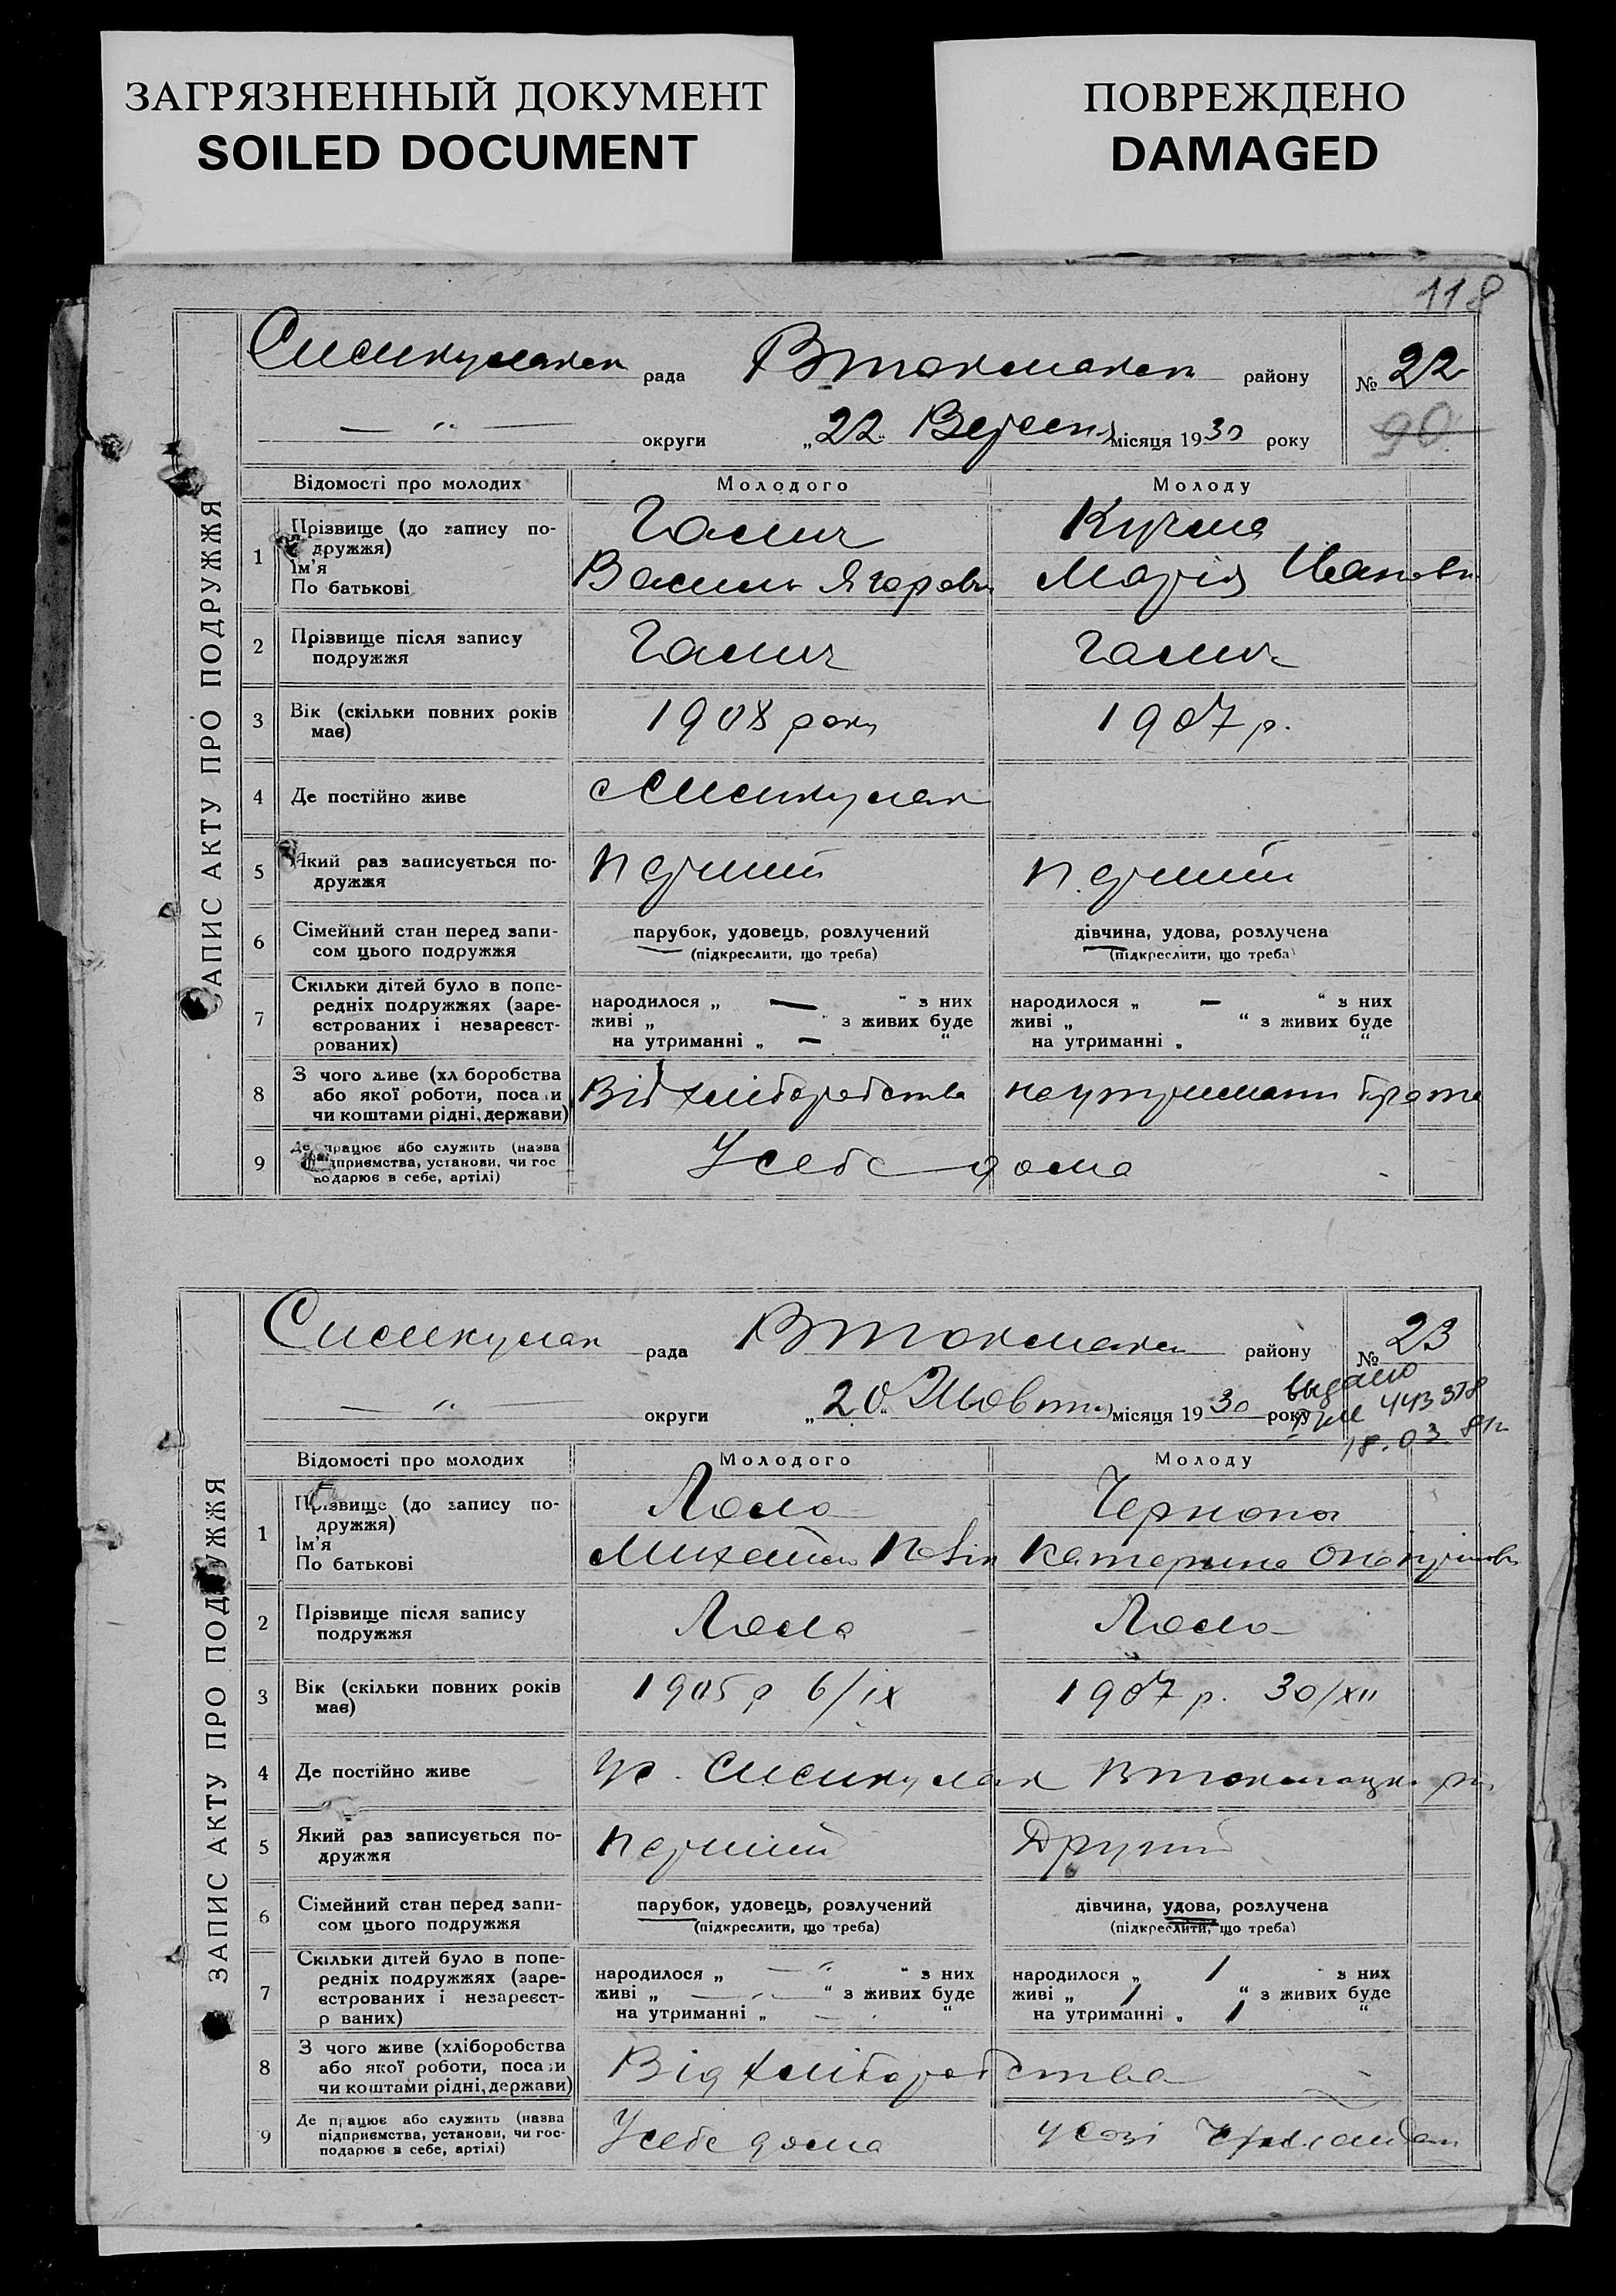 ЗАГРЯЗНЕННЫЙ ДОКУМЕНТ
SOILED DOCUMENT
ПОВРЕЖДЕНО
DAMAGED
118
ЗАПИС АКТУ ПРО ПОДРУЖЖЯ
рада Втокмакськ району № 22
— " — округи „22" Вересня місяця 1930 року 90
Відомості про молодих Молодого Молоду
1 Прізвище (до запису по- Галич Кучма
дружжя)
Ім'я Василь Ягорович Марія Іванов
По батькові
2 Прізвище після запису Галич Галич
подружжя
3 Вік (скільки повних років 1908 року 1907 р.
має)
4 Де постійно живе
5 Який раз записується по- перший перший
дружжя
6 Сімейний стан перед запи- парубок, удовець, розлучений дівчина, удова, розлучена
сом цього подружжя (підкреслити, що треба) (підкреслити, що треба)
7 Скільки дітей було в попе- народилося „ — " з них народилося „ — " з них
редніх подружжях (заре- живі „ " з живих буде живі „ " з живих буде
єстрованих і незареєст- на утриманні „ — " на утриманні „ "
рованих)
8 З чого живе (хліборобства Від хліборобства на утриманні брата
або якої роботи, посади
чи коштами рідні, держави)
9 Де працює або служить (назва У себе дома
підприємства, установи, чи гос-
подарює в себе, артілі)
ЗАПИС АКТУ ПРО ПОДРУЖЖЯ
рада Втокмакськ району № 23
— " — округи „20" Жовтня місяця 1930 року
выдано
443378
18.03.81г
Відомості про молодих Молодого Молоду
1 Прізвище (до запису по- Лола
дружжя)
Ім'я Михайло Катерина
По батькові
2 Прізвище після запису Лола Лола
подружжя
3 Вік (скільки повних років 1905 р 6/IX 1907 р. 30/XII
має)
4 Де постійно живе
5 Який раз записується по- перший Другий
дружжя
6 Сімейний стан перед запи- парубок, удовець, розлучений дівчина, удова, розлучена
сом цього подружжя (підкреслити, що треба) (підкреслити, що треба)
7 Скільки дітей було в попе- народилося „ — " — " з них народилося „ 1 " з них
редніх подружжях (заре- живі „ — " — " з живих буде живі „ 1 " з живих буде
єстрованих і незареєст- на утриманні „ — " на утриманні „ 1 "
р ваних)
8 З чого живе (хліборобства Від хліборобства
або якої роботи, посади
чи коштами рідні, держави)
9 Де працює або служить (назва У себе дома
підприємства, установи, чи гос-
подарює в себе, артілі)